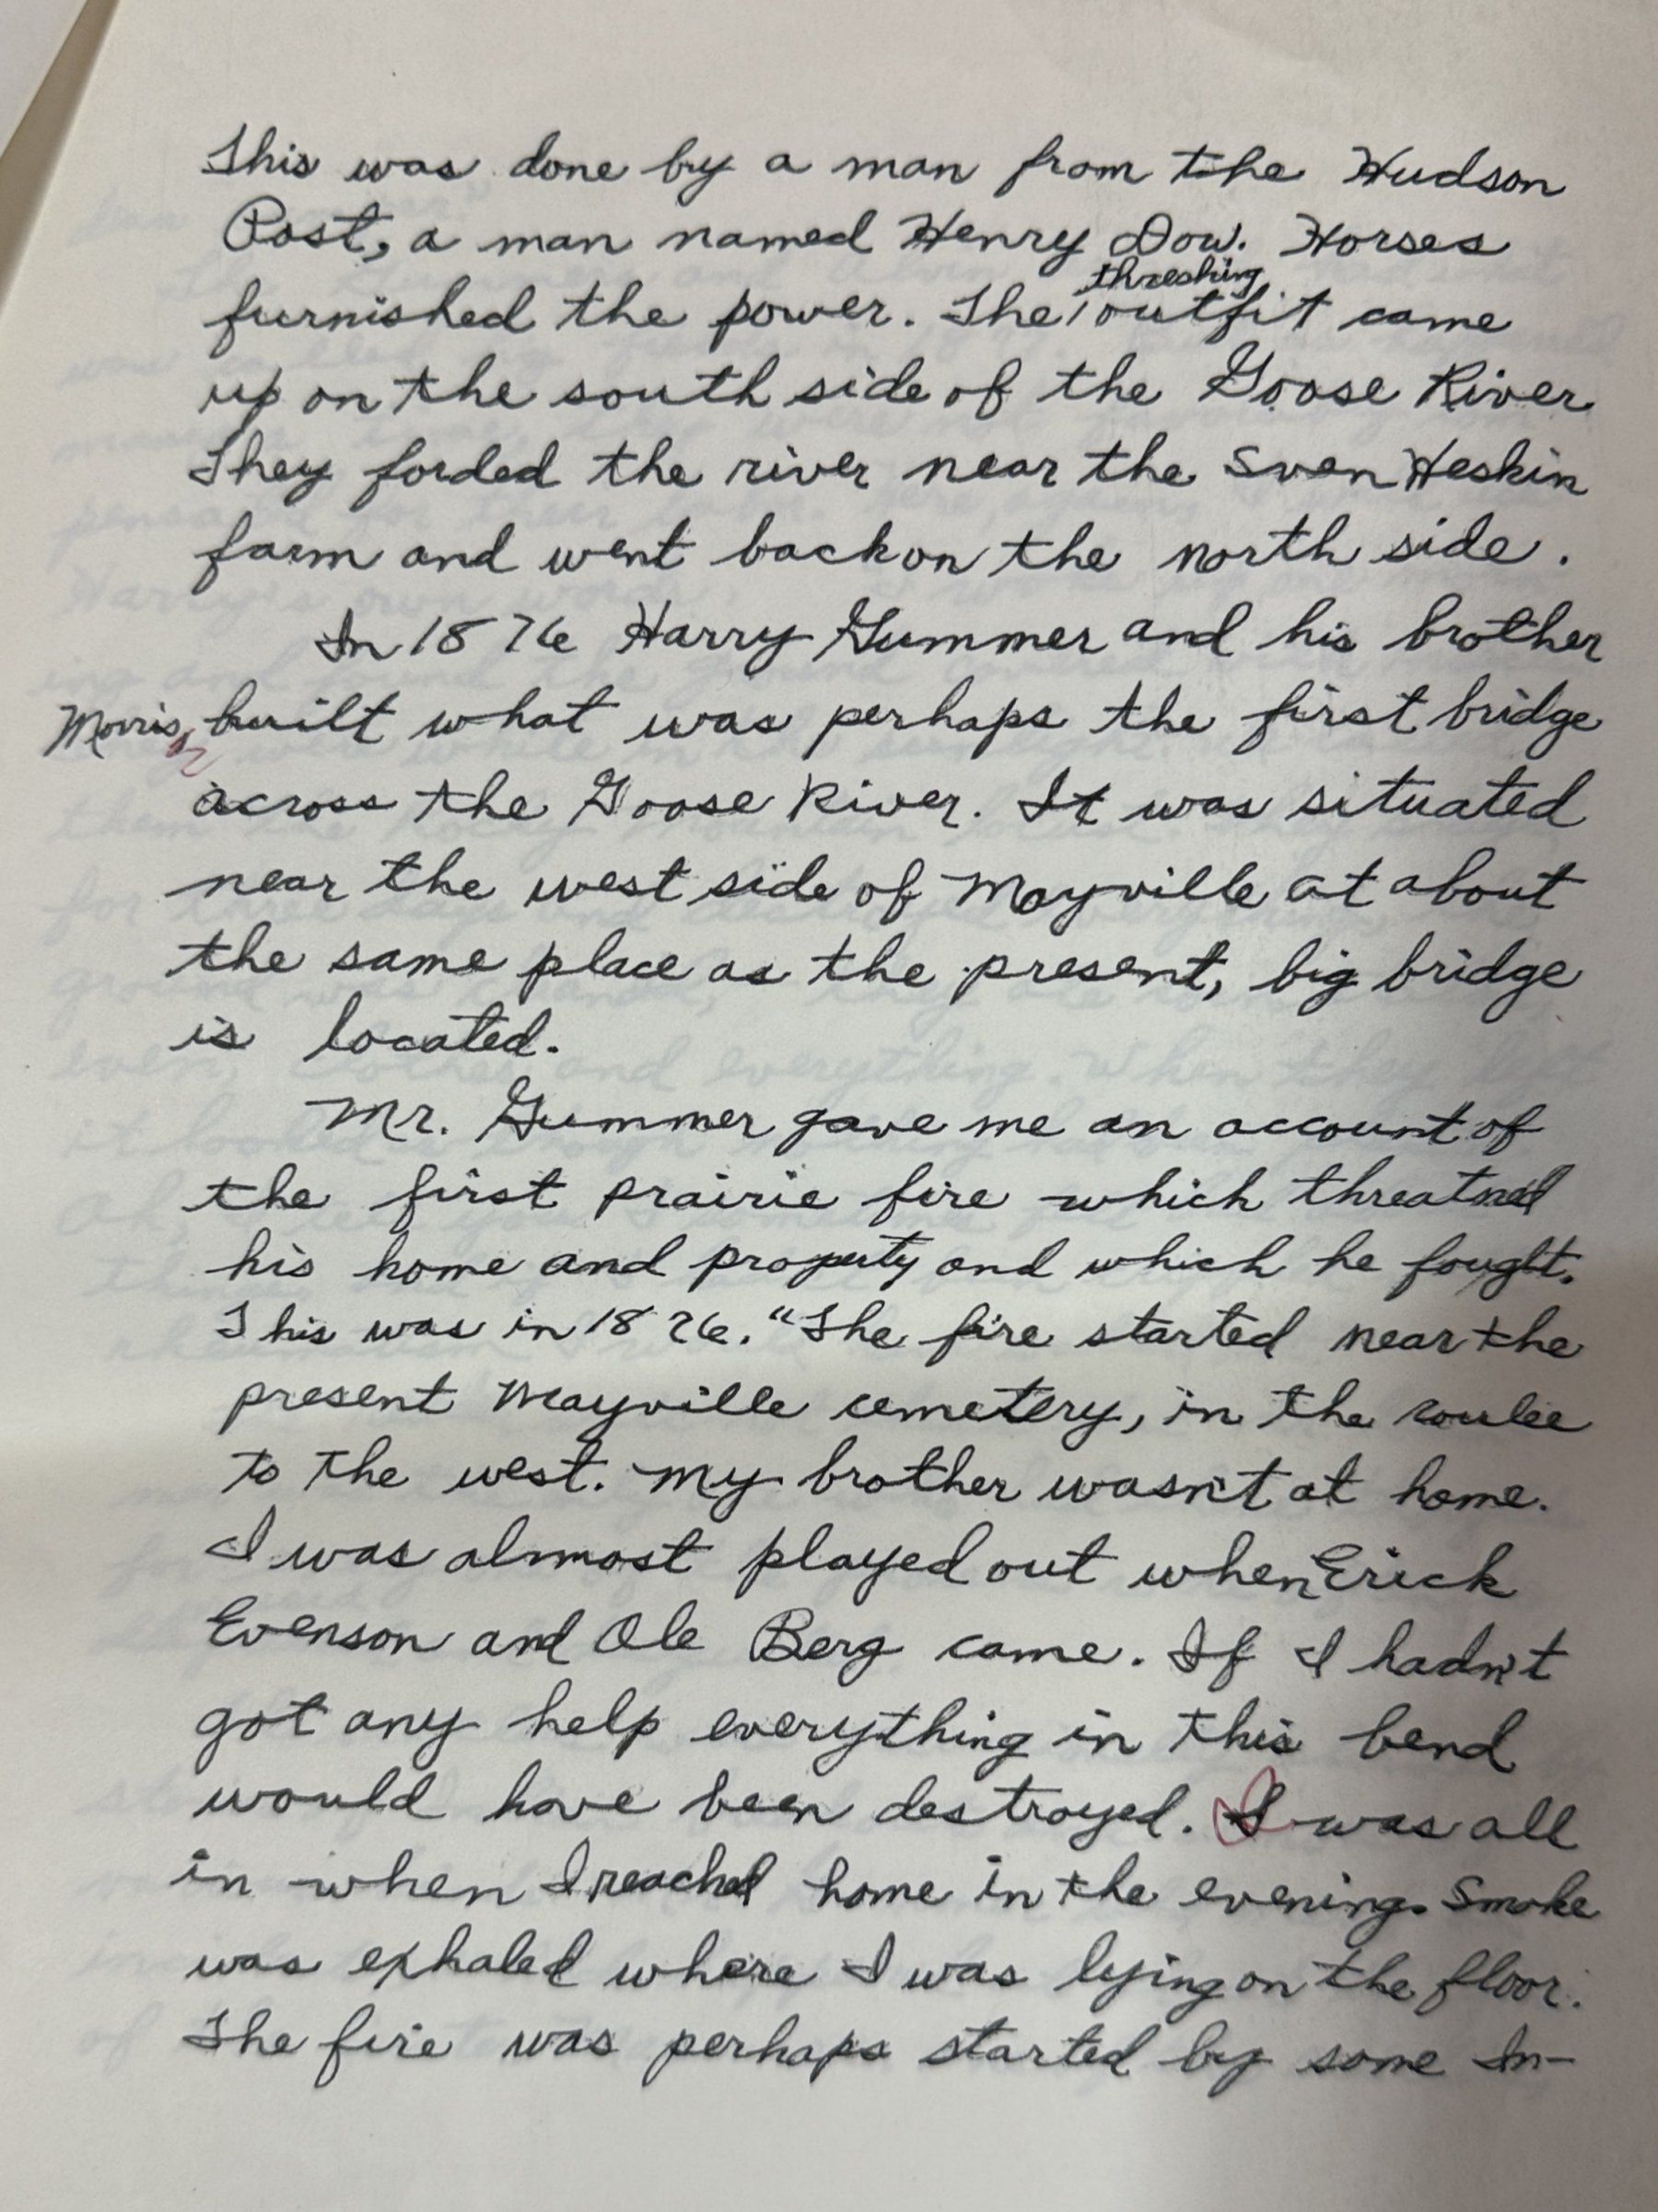 This was done by a man from the Hudson
Post, a man named Henry Dow. Horses
furnished the power. The threshing outfit came
up on the south side of the Goose River
They forded the river near the Sven Heskin
farm and went back on the north side.
In 1876 Harry Gummer and his brother
Morris, built what was perhaps the first bridge
across the Goose River. It was situated
near the west side of Mayville at about
the same place as the present, big bridge
is located.
Mr. Gummer gave me an account of
the first prairie fire which threatned
his home and property and which he fought.
This was in 1876. "The fire started near the
present Mayville cemetery, in the coulee
to the west. My brother wasn't at home.
I was almost played out when Erick
Evenson and Ole Berg came. If I hadn't
got any help everything in this bend
would have been destroyed. I was all
in when I reached home in the evening. Smoke
was exhaled where I was lying on the floor.
The fire was perhaps started by some In-